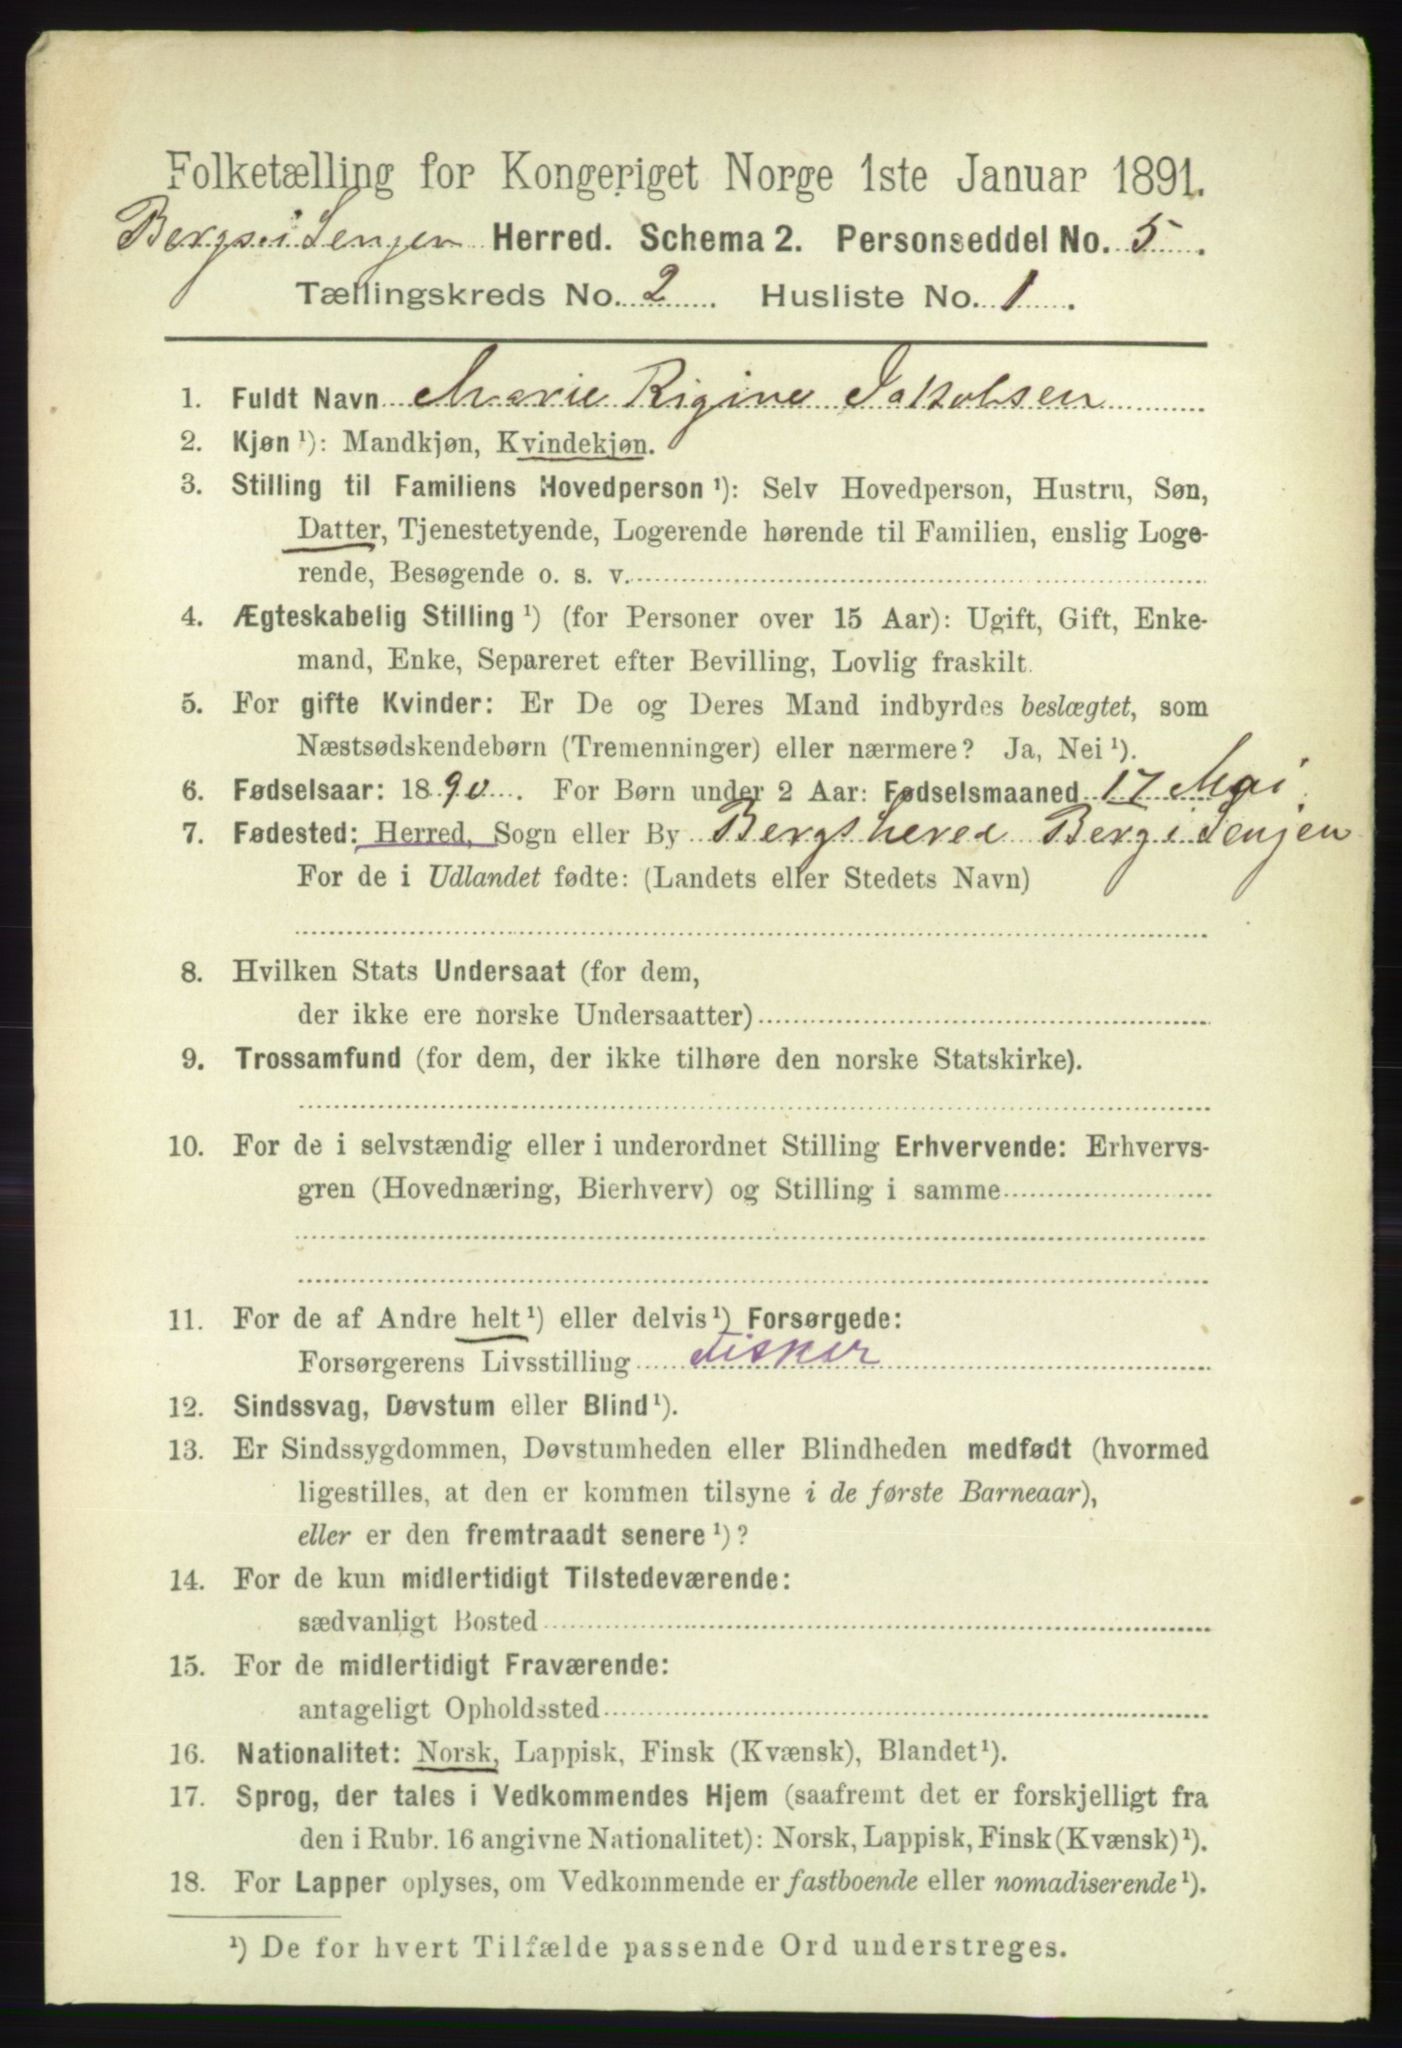 Folketælling for Kongeriget Norge 1ste Januar 1891.
Bergs i Senjen Herred. Schema 2. Personseddel No. 5.
Tællingskreds No. 2. Husliste No. 1.
1. Fuldt Navn Marie Rigine Jakobsen
2. Kjøn ¹): Mandkjøn, Kvindekjøn.
3. Stilling til Familiens Hovedperson ¹): Selv Hovedperson, Hustru, Søn,
Datter, Tjenestetyende, Logerende hørende til Familien, enslig Loge-
rende, Besøgende o. s. v.
4. Ægteskabelig Stilling ¹) (for Personer over 15 Aar): Ugift, Gift, Enke-
mand, Enke, Separeret efter Bevilling, Lovlig fraskilt.
5. For gifte Kvinder: Er De og Deres Mand indbyrdes beslægtet, som
Næstsødskendebørn (Tremenninger) eller nærmere? Ja, Nei ¹).
6. Fødselsaar: 1890. For Børn under 2 Aar: Fødselsmaaned 17 Mai
7. Fødested: Herred, Sogn eller By Bergs hered Berg i Senjen
For de i Udlandet fødte: (Landets eller Stedets Navn)
8. Hvilken Stats Undersaat (for dem,
der ikke ere norske Undersaatter)
9. Trossamfund (for dem, der ikke tilhøre den norske Statskirke).
10. For de i selvstændig eller i underordnet Stilling Erhvervende: Erhvervs-
gren (Hovednæring, Bierhverv) og Stilling i samme
11. For de af Andre helt ¹) eller delvis ¹) Forsørgede:
Forsørgerens Livsstilling Fisker
12. Sindssvag, Døvstum eller Blind ¹).
13. Er Sindssygdommen, Døvstumheden eller Blindheden medfødt (hvormed
ligestilles, at den er kommen tilsyne i de første Barneaar),
eller er den fremtraadt senere ¹)?
14. For de kun midlertidigt Tilstedeværende:
sædvanligt Bosted
15. For de midlertidigt Fraværende:
antageligt Opholdssted
16. Nationalitet: Norsk, Lappisk, Finsk (Kvænsk), Blandet ¹).
17. Sprog, der tales i Vedkommendes Hjem (saafremt det er forskjelligt fra
den i Rubr. 16 angivne Nationalitet): Norsk, Lappisk, Finsk (Kvænsk) ¹).
18. For Lapper oplyses, om Vedkommende er fastboende eller nomadiserende ¹).
¹) De for hvert Tilfælde passende Ord understreges.